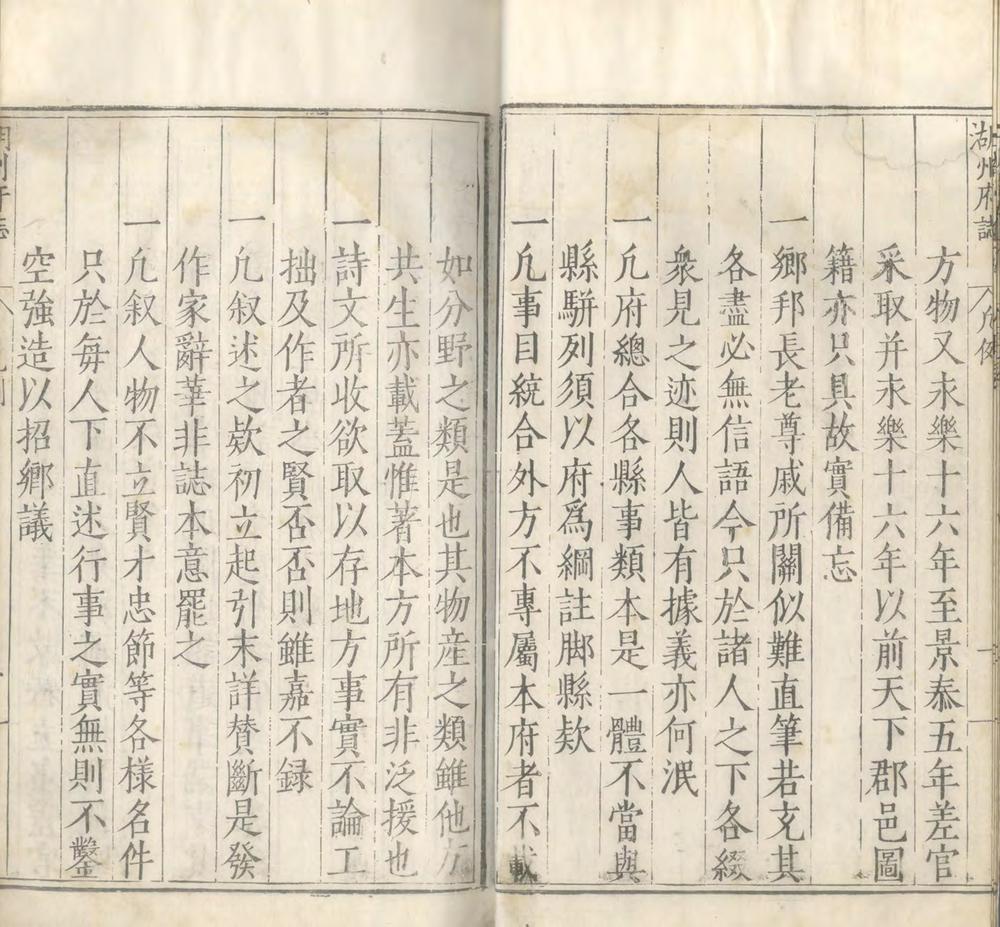 湖州府誌 凡例
方物又永樂十六年至景泰五年差官
采取并永樂十六年以前天下郡邑圖
籍亦只具故實備忘
一鄉邦長老尊戚所關似難直筆若克其
各盡必無信語今只於諸人之下各綴
衆見之迹則人皆有據義亦何泯
一凡府總合各縣事類本是一體不當與
縣駢列須以府爲綱註脚縣欵
一凡事目統合外方不專屬本府者不載
如分野之類是也其物産之類雖他方
共生亦載蓋惟著本方所有非泛援也
一詩文所收欲取以存地方事實不論工
拙及作者之賢否否則雖嘉不録
一凡叙述之欵初立起引末詳賛斷是發
作家辭華非誌本意罷之
一凡叙人物不立賢才忠節等各様名件
只於毎人下直述行事之實無則不鑿
空強造以招鄉議